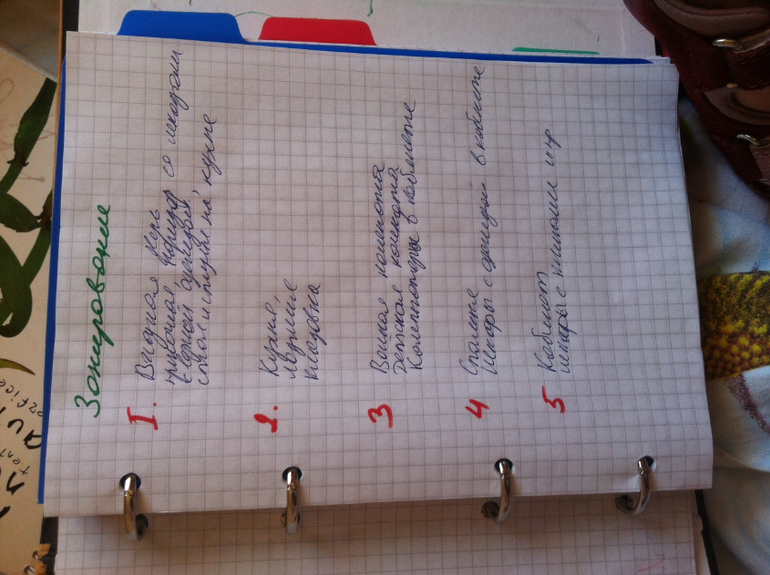 Зонирование
I. Входная зона
прихожая, коридор со шкафами
с верхней одеждой,
стол и стулья на кухне
2. Кухня,
лоджия
Кладовка
3 Ванная комната
Детская комната
Канцтовары в кабинете
4 Спальня
Шкафы с одеждой в кабинете
5 Кабинет
шкафы с книгами и
office